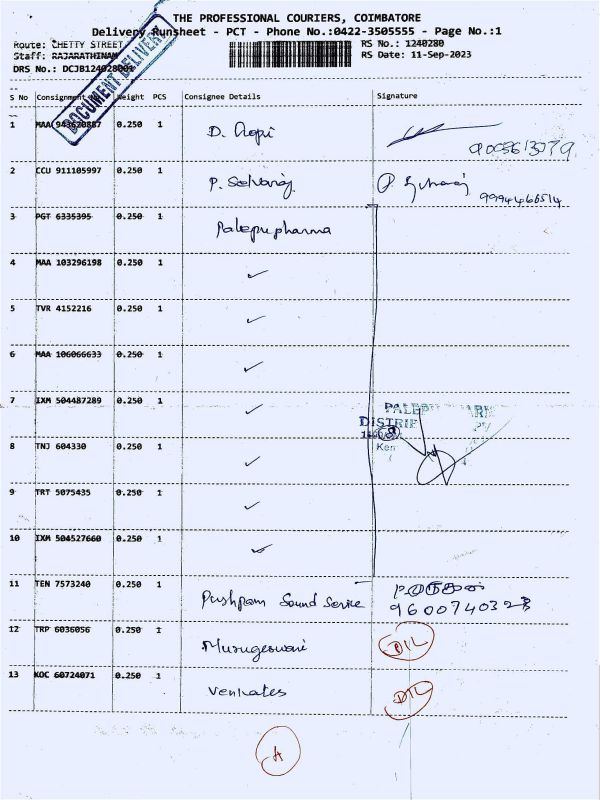 THE PROFESSIONAL COURIERS, COIMBATORE
Delivery Runsheet - PCT - Phone No.:0422-3505555 - Page No.:1
Route: CHETTY STREET
RS No.: 1240280
Staff: RAJARATHINAM
RS Date: 11-Sep-2023
DRS No.: DCJB124028001
DOCUMENT DELIVERY
S No Consignment Weight PCS Consignee Details Signature
1 MAA 943620887 0.250 1 D. Gopi
9005613079
2 CCU 911105997 0.250 1 P. Selvaraj
9994466514
3 PGT 6335395 0.250 1 Palepu pharma
4 MAA 103296198 0.250 1 ✓
5 TVR 4152216 0.250 1 ✓
6 MAA 106066633 0.250 1 ✓
7 IXM 504487289 0.250 1 ✓
DISTRIB
8 TNJ 604330 0.250 1 ✓
9 TRT 5075435 0.250 1 ✓
10 IXM 504527660 0.250 1 ✓
11 TEN 7573240 0.250 1 Pushpam Sound Service
9600740323
12 TRP 6036056 0.250 1 Murugeswari DIL
13 KOC 60724071 0.250 1 Venkates DIL
A